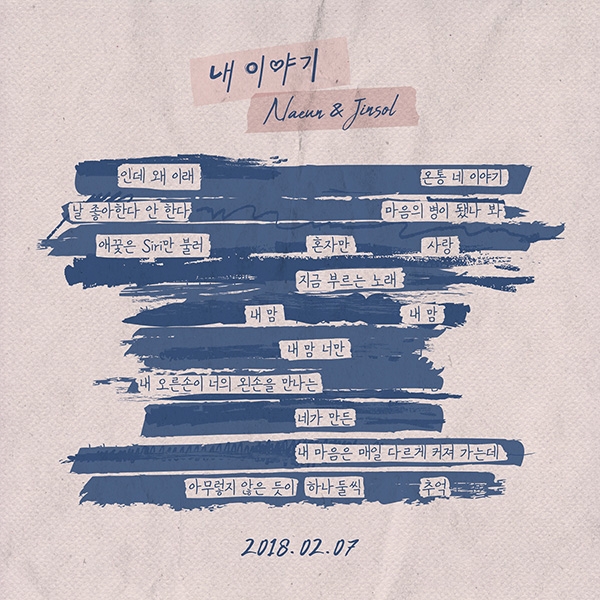 내 이야기
Naeun & Jinsol
인데 왜 이래 온통 네 이야기
날 좋아한다 안 한다 마음의 병이 됐나 봐
애꿎은 Siri만 불러 혼자만 사랑
지금 부르는 노래
내 맘 내 맘
내 맘 너만
내 오른손이 너의 왼손을 만나는
네가 만든
내 마음은 매일 다르게 커져 가는데
아무렇지 않은 듯이 하나 둘씩 추억
2018.02.07